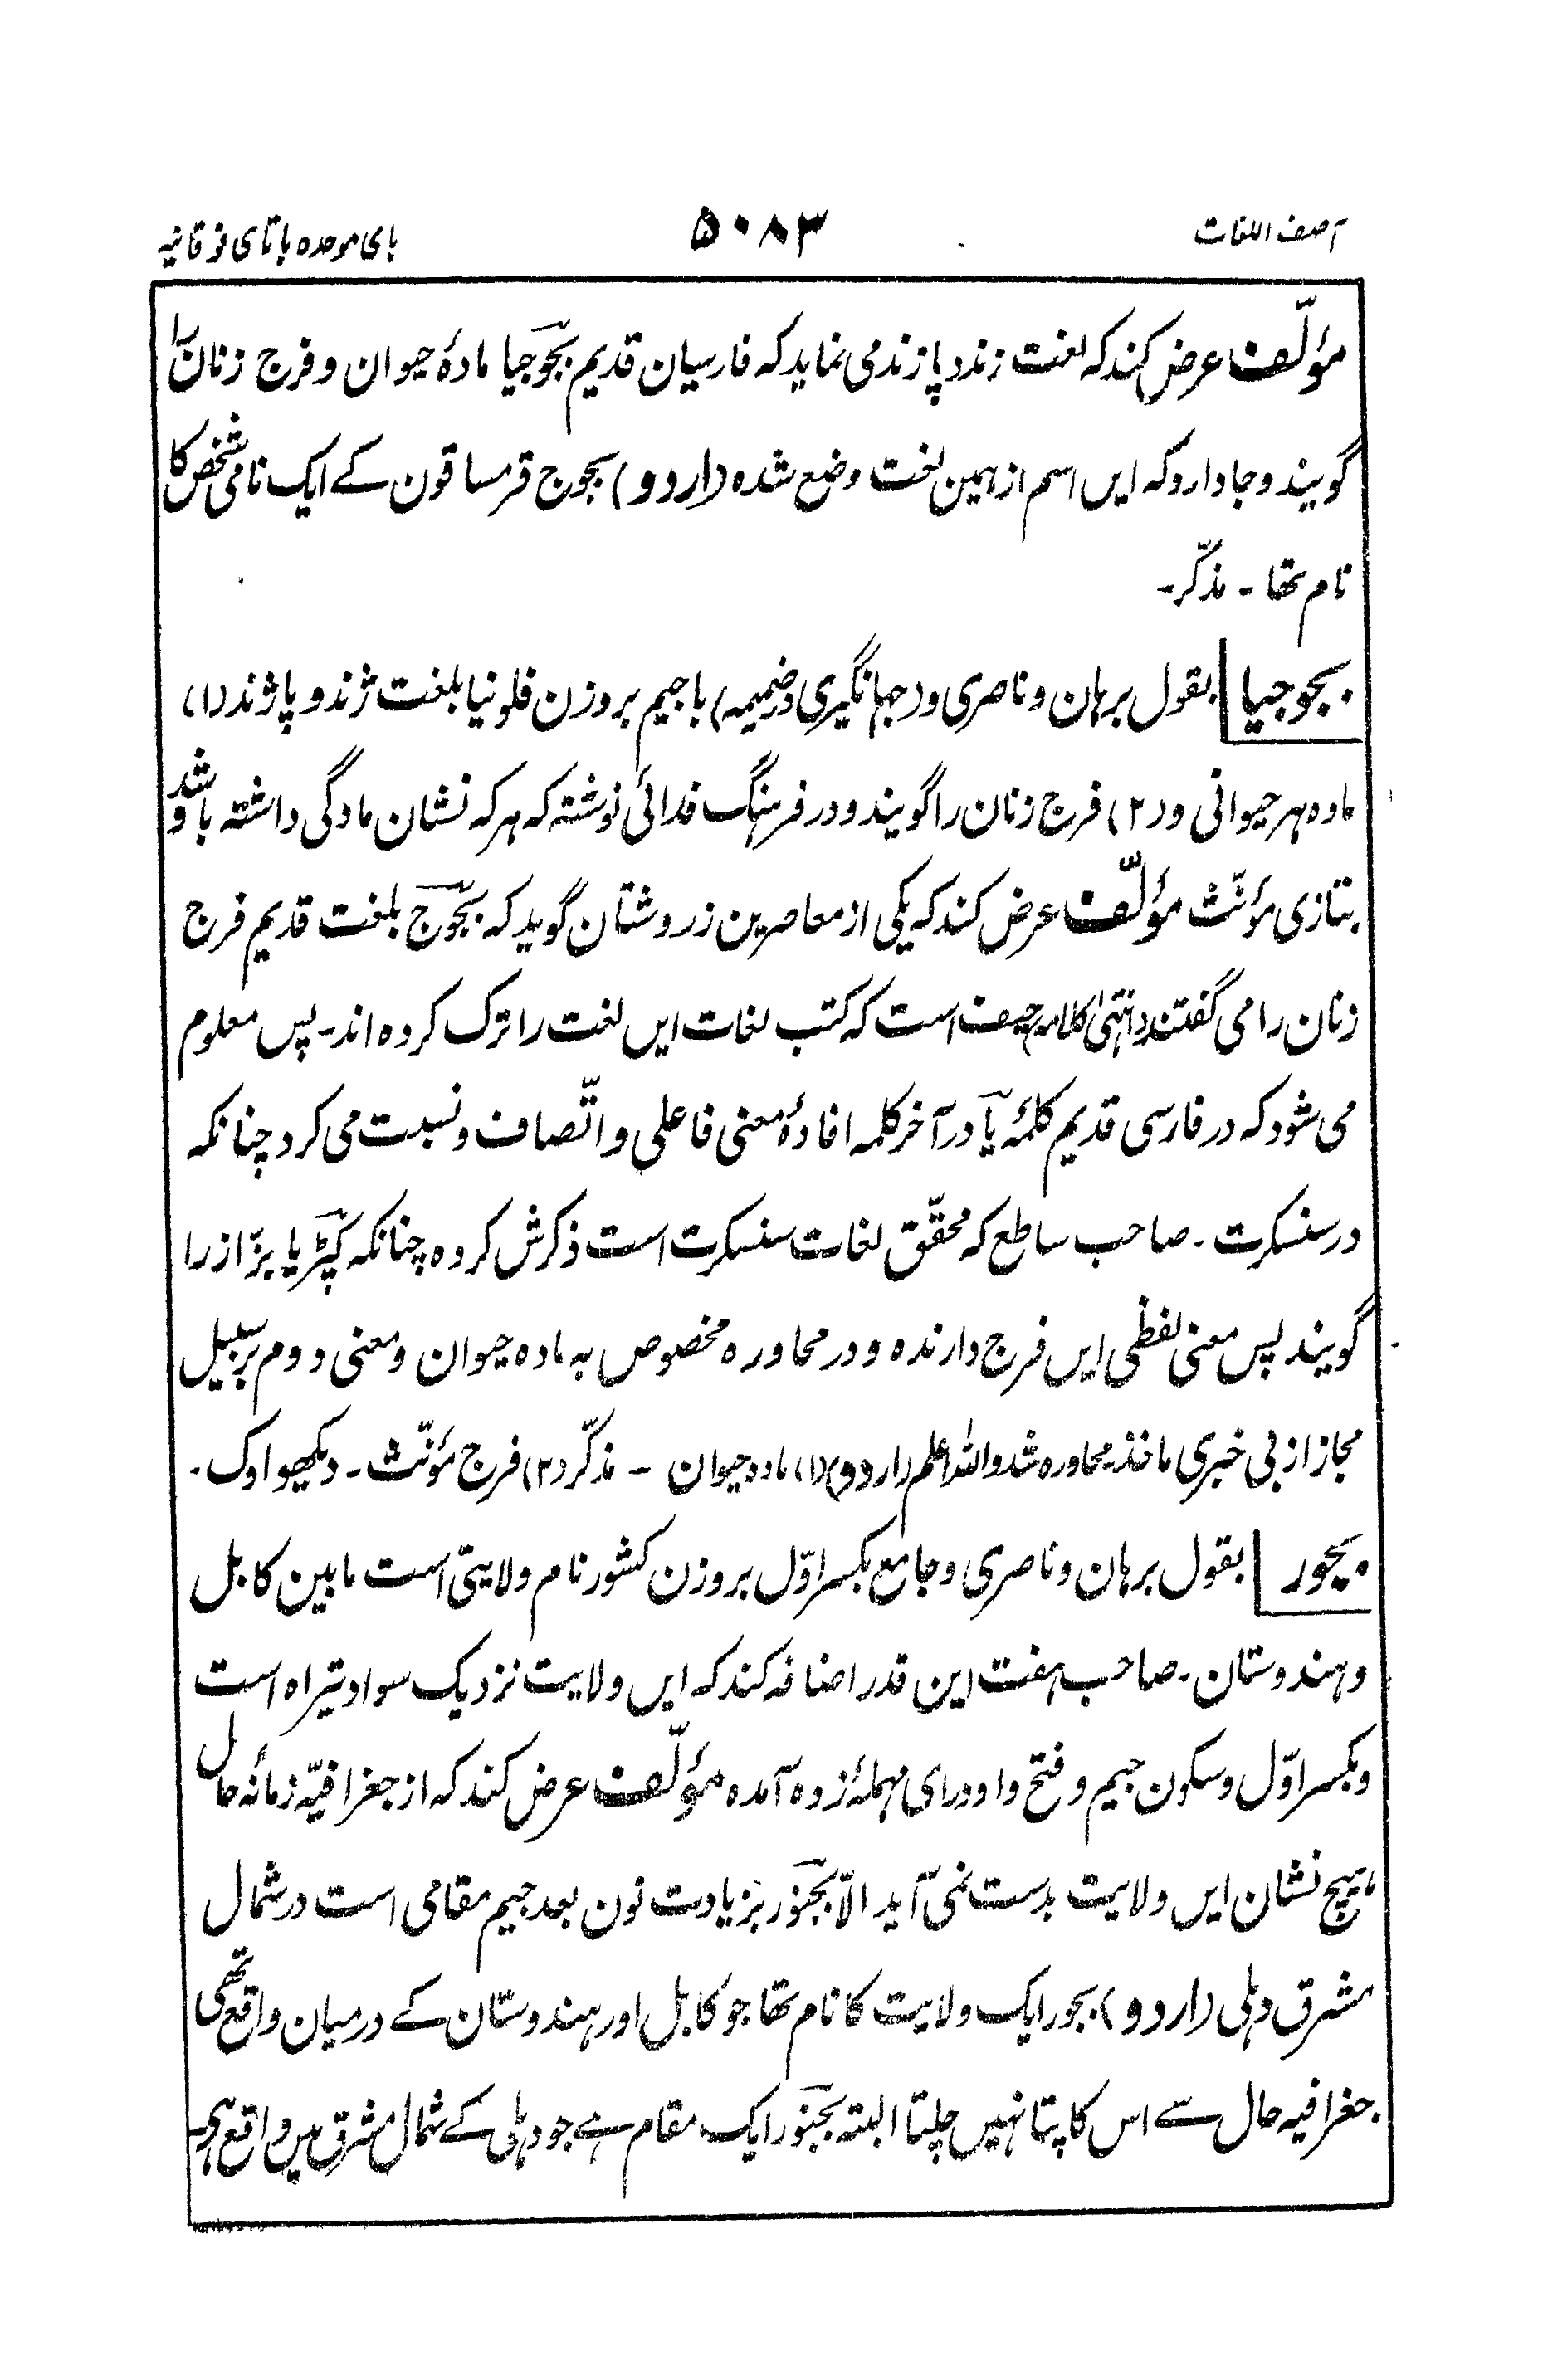 آصف اللغات ۵۰۸۳ بای موحده باتای فوقانیه
مؤلّف عرض کند که لغت زند و پازند می نماید که فارسیان قدیم بجّوجیا مادهٔ حیوان و فرج زنان را
گویند و جا دارد که ایں اسم از ہمین لغت وضع شده (اردو) بجوج قرمساقون کے ایک نامی شخص کا
نام تھا ۔ مذکّر۔
بجوجیا بقول برہان و ناصری و (جہانگیری در ضمیمہ) با جیم بر وزن فلونیا بلغت ژند و پاژند (۱)
ماده ہر حیوانی و (۲) فرج زنان را گویند و در فرہنگ فدائی نوشتہ کہ ہر کہ نشان مادگی داشتہ باشد و
بتازی مؤنّث مؤلّف عرض کند کہ یکی از معاصرین زردشتان گوید کہ بجّوج بلغت قدیم فرج
زنان را می گفتند (انتہیٰ کلامہ) حیف است کہ کتب لغات ایں لغت را ترک کرده اند۔ پس معلوم
می شود کہ در فارسی قدیم کلمۂ یآ در آخر کلمہ افادهٔ معنی فاعلی و اتّصاف و نسبت می کرد چنانکہ
در سنسکرت ۔ صاحب ساطع کہ محقّق لغات سنسکرت است ذکرش کرده چنانکہ کپڑیا بزّاز را
گویند پس معنی لفظی ایں فرج دارنده و در محاوره مخصوص بہ ماده حیوان و معنی دوم بر سبیل
مجاز از بی خبری ماخذ محاوره شد واللہ اعلم (اردو) (۱) ماده حیوان ۔ مذکّر (۲) فرج مؤنّث ۔ دیکھو اوک ۔
بجور بقول برہان و ناصری و جامع بکسر اوّل بر وزن کشور نام ولایتی است مابین کابل
و ہندوستان ۔ صاحب ہفت این قدر اضافہ کند کہ ایں ولایت نزدیک سواد تیراه است
و بکسر اوّل و سکون جیم و فتح واو و رای مہملۂ زده آمده مؤلّف عرض کند کہ از جغرافیّہ زمانۂ حال
ہیچ نشان ایں ولایت بدست نمی آید الّا بجّنور بزیادت نون بعد جیم مقامی است در شمال
مشرق دہلی (اردو) بجور ایک ولایت کا نام تھا جو کابل اور ہندوستان کے درمیان واقع تھی
جغرافیہ حال سے اس کا پتا نہیں چلتا البتہ بجنّور ایک مقام ہے جو دہلی کے شمال مشرق میں واقع ہے۔